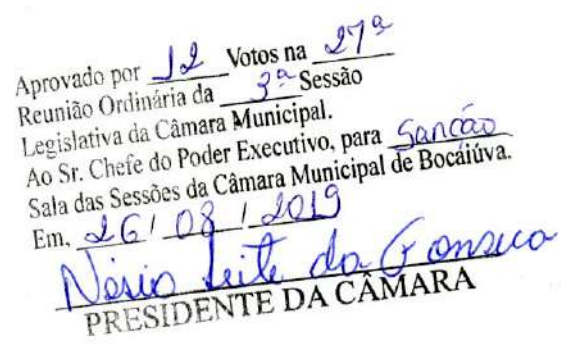 Aprovado por 12 Votos na 27ª
Reunião Ordinária da 3ª Sessão
Legislativa da Câmara Municipal.
Ao Sr. Chefe do Poder Executivo, para Sanção
Sala das Sessões da Câmara Municipal de Bocáiúva.
Em, 26/08/2019
Leite da Fonseca
PRESIDENTE DA CÂMARA